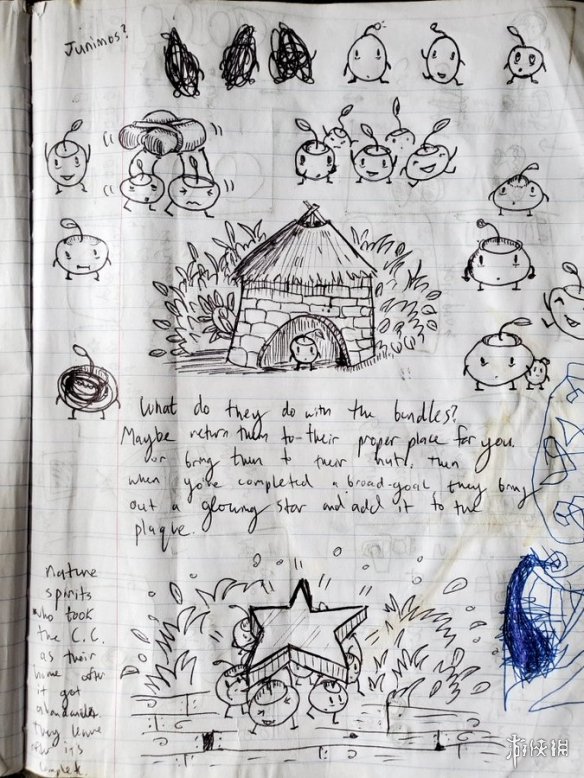 Junimos?
What do they do with the bundles?
Maybe return them to their proper place for you.
or bring them to their huts. Then
when you've completed a broad-goal they bring
out a glowing star and add it to the
plaque.
nature
spirits
who took
the C.C.
as their
home after
it got
abandoned.
they leave
when it's
complete.
游侠网